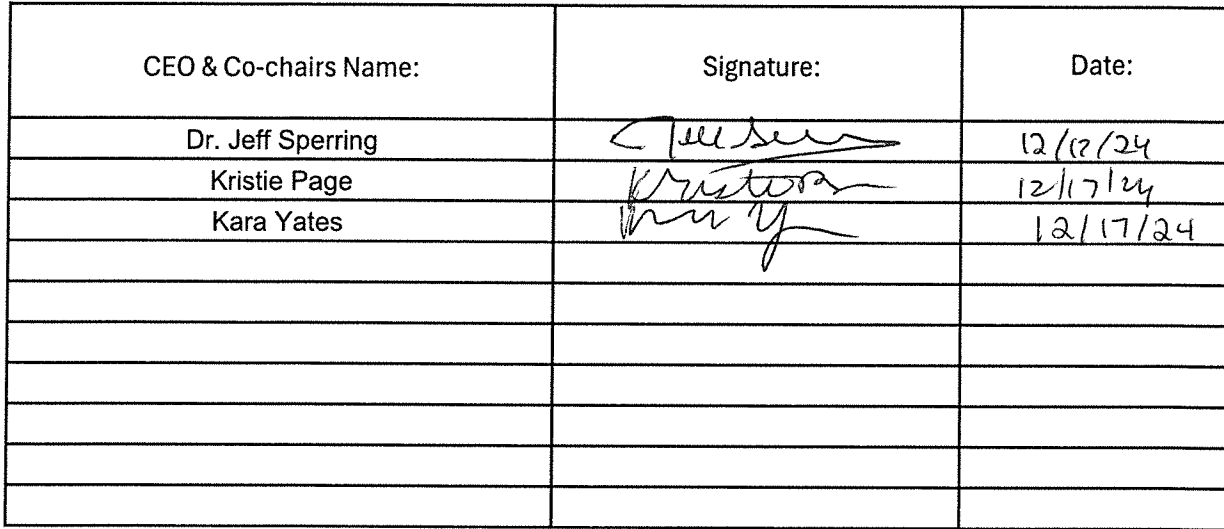 CEO & Co-chairs Name: Signature: Date:
Dr. Jeff Sperring 12/12/24
Kristie Page 12/17/24
Kara Yates 12/17/24